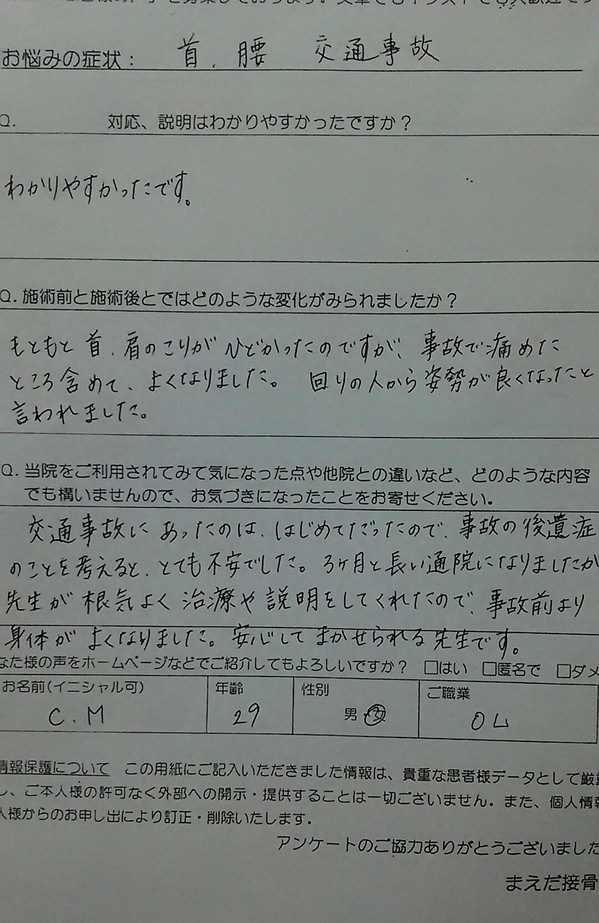 お悩みの症状： 首、腰 交通事故
Q. 対応、説明はわかりやすかったですか？
わかりやすかったです。
Q. 施術前と施術後とではどのような変化がみられましたか？
もともと首、肩のこりがひどかったのですが、事故で痛めた
ところ含めて、よくなりました。 回りの人から姿勢が良くなったと
言われました。
Q. 当院をご利用されてみて気になった点や他院との違いなど、どのような内容
でも構いませんので、お気づきになったことをお寄せください。
交通事故にあったのは、はじめてだったので、事故の後遺症
のことを考えると、とても不安でした。3ヶ月と長い通院になりましたが
先生が根気よく治療や説明をしてくれたので、事故前より
身体がよくなりました。安心してまかせられる先生です。
なた様の声をホームページなどでご紹介してもよろしいですか？ □はい □匿名で □ダメ
お名前(イニシャル可) 年齢 性別 ご職業
C.M 29 男・女 OL
情報保護について この用紙にご記入いただきました情報は、貴重な患者様データとして厳重
し、ご本人様の許可なく外部への開示・提供することは一切ございません。また、個人情報
人様からのお申し出により訂正・削除いたします。
アンケートのご協力ありがとうございました
まえだ接骨